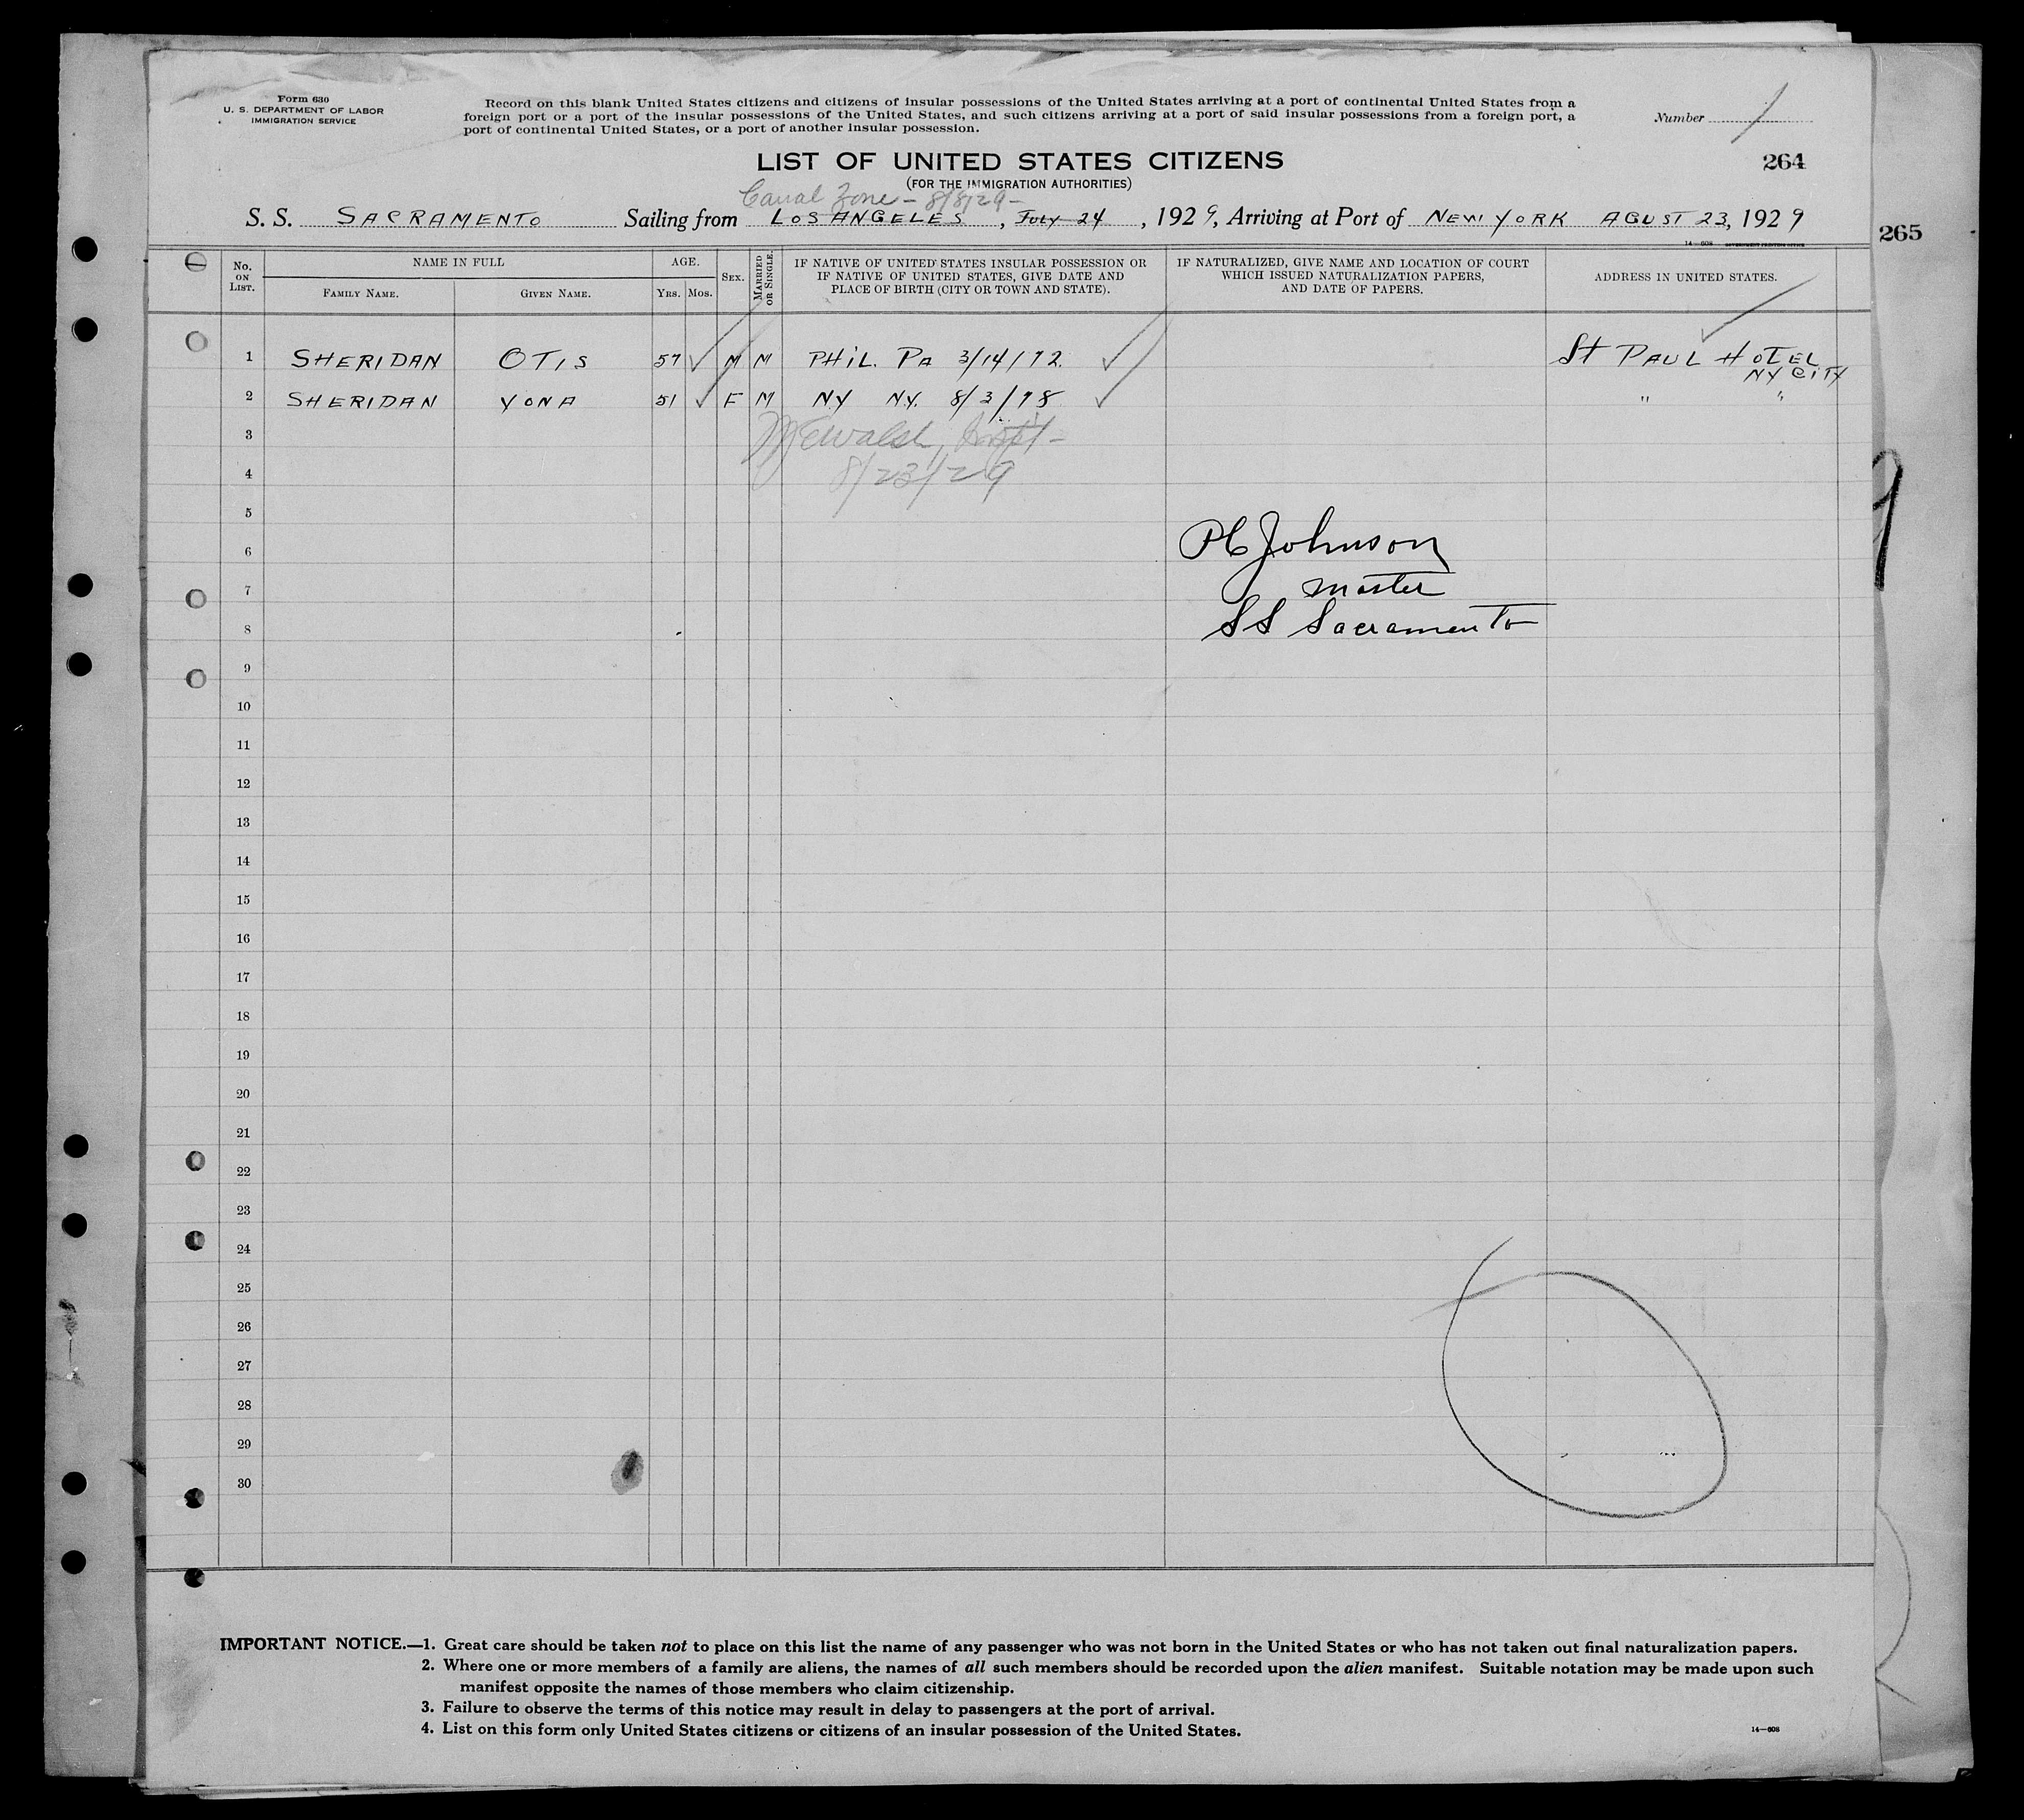 Form 630
U. S. DEPARTMENT OF LABOR
IMMIGRATION SERVICE
Record on this blank United States citizens and citizens of insular possessions of the United States arriving at a port of continental United States from a
foreign port or a port of the insular possessions of the United States, and such citizens arriving at a port of said insular possessions from a foreign port, a
port of continental United States, or a port of another insular possession.
Number 1
LIST OF UNITED STATES CITIZENS
264
(FOR THE IMMIGRATION AUTHORITIES)
Canal Zone - 8/8/29 -
S. S. SACRAMENTO Sailing from LOS ANGELES, JULY 24, 1929, Arriving at Port of NEW YORK AGUST 23, 1929
265
14—608 GOVERNMENT PRINTING OFFICE
No. ON LIST.
NAME IN FULL
FAMILY NAME.
GIVEN NAME.
AGE.
YRS. MOS.
SEX.
MARRIED OR SINGLE.
IF NATIVE OF UNITED STATES INSULAR POSSESSION OR
IF NATIVE OF UNITED STATES, GIVE DATE AND
PLACE OF BIRTH (CITY OR TOWN AND STATE).
IF NATURALIZED, GIVE NAME AND LOCATION OF COURT
WHICH ISSUED NATURALIZATION PAPERS,
AND DATE OF PAPERS.
ADDRESS IN UNITED STATES.
1 SHERIDAN OTIS 57 M M PHIL. PA 3/14/72. St PAUL HOTEL
NY CITY
2 SHERIDAN YONA 51 F M NY NY. 8/3/78 " "
3
4 8/23/29
5
6 PC Johnson
7 master
8 SS Sacramento
9
10
11
12
13
14
15
16
17
18
19
20
21
22
23
24
25
26
27
28
29
30
IMPORTANT NOTICE.—1. Great care should be taken not to place on this list the name of any passenger who was not born in the United States or who has not taken out final naturalization papers.
2. Where one or more members of a family are aliens, the names of all such members should be recorded upon the alien manifest. Suitable notation may be made upon such
manifest opposite the names of those members who claim citizenship.
3. Failure to observe the terms of this notice may result in delay to passengers at the port of arrival.
4. List on this form only United States citizens or citizens of an insular possession of the United States.
14—608